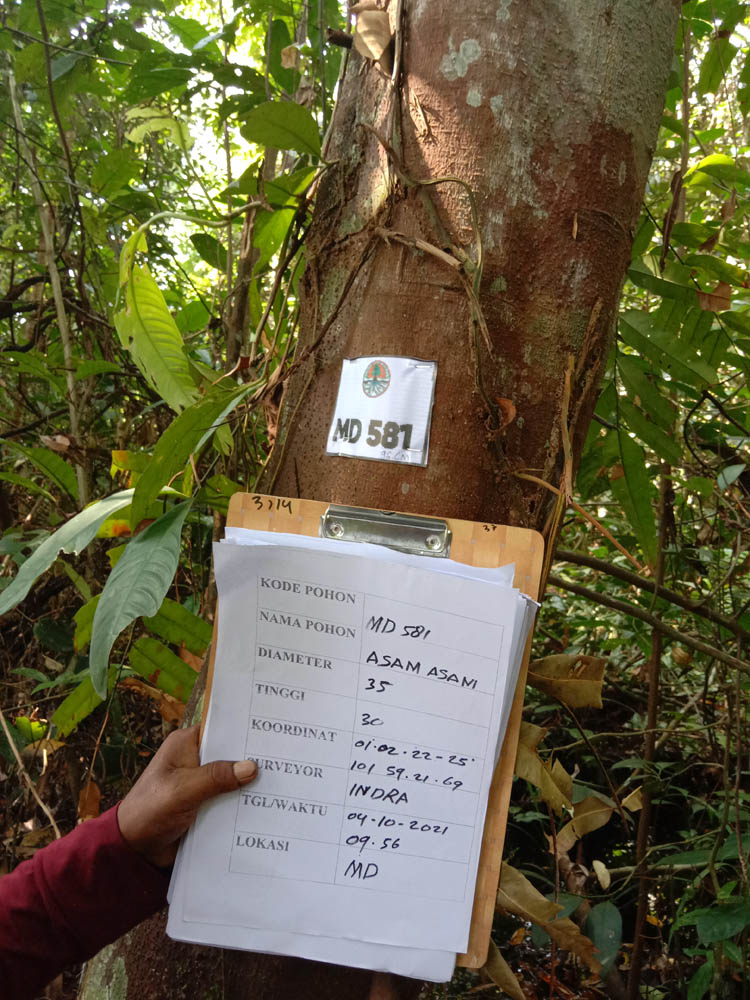 MD 581
95 CM
3714
KODE POHON MD 581
NAMA POHON ASAM ASAM
DIAMETER 35
TINGGI 30
KOORDINAT 01.02.22-25'
101 59.21.69
SURVEYOR INDRA
TGL/WAKTU 04-10-2021
09.56
LOKASI MD